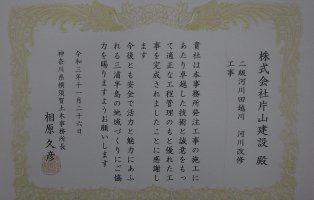 株式会社片山建設 殿
二級河川田越川 河川改修
工事
貴社は本事務所発注工事の施工に
あたり卓越した技術と誠意をもっ
て適正な工程管理のもと優れた工
事を完成されましたことに感謝し
ます
今後とも安全で活力と魅力にあふ
れる三浦半島の地域づくりにご協
力を賜りますようお願いします
令和三年十一月二十六日
神奈川県横須賀土木事務所長
相原 久彦